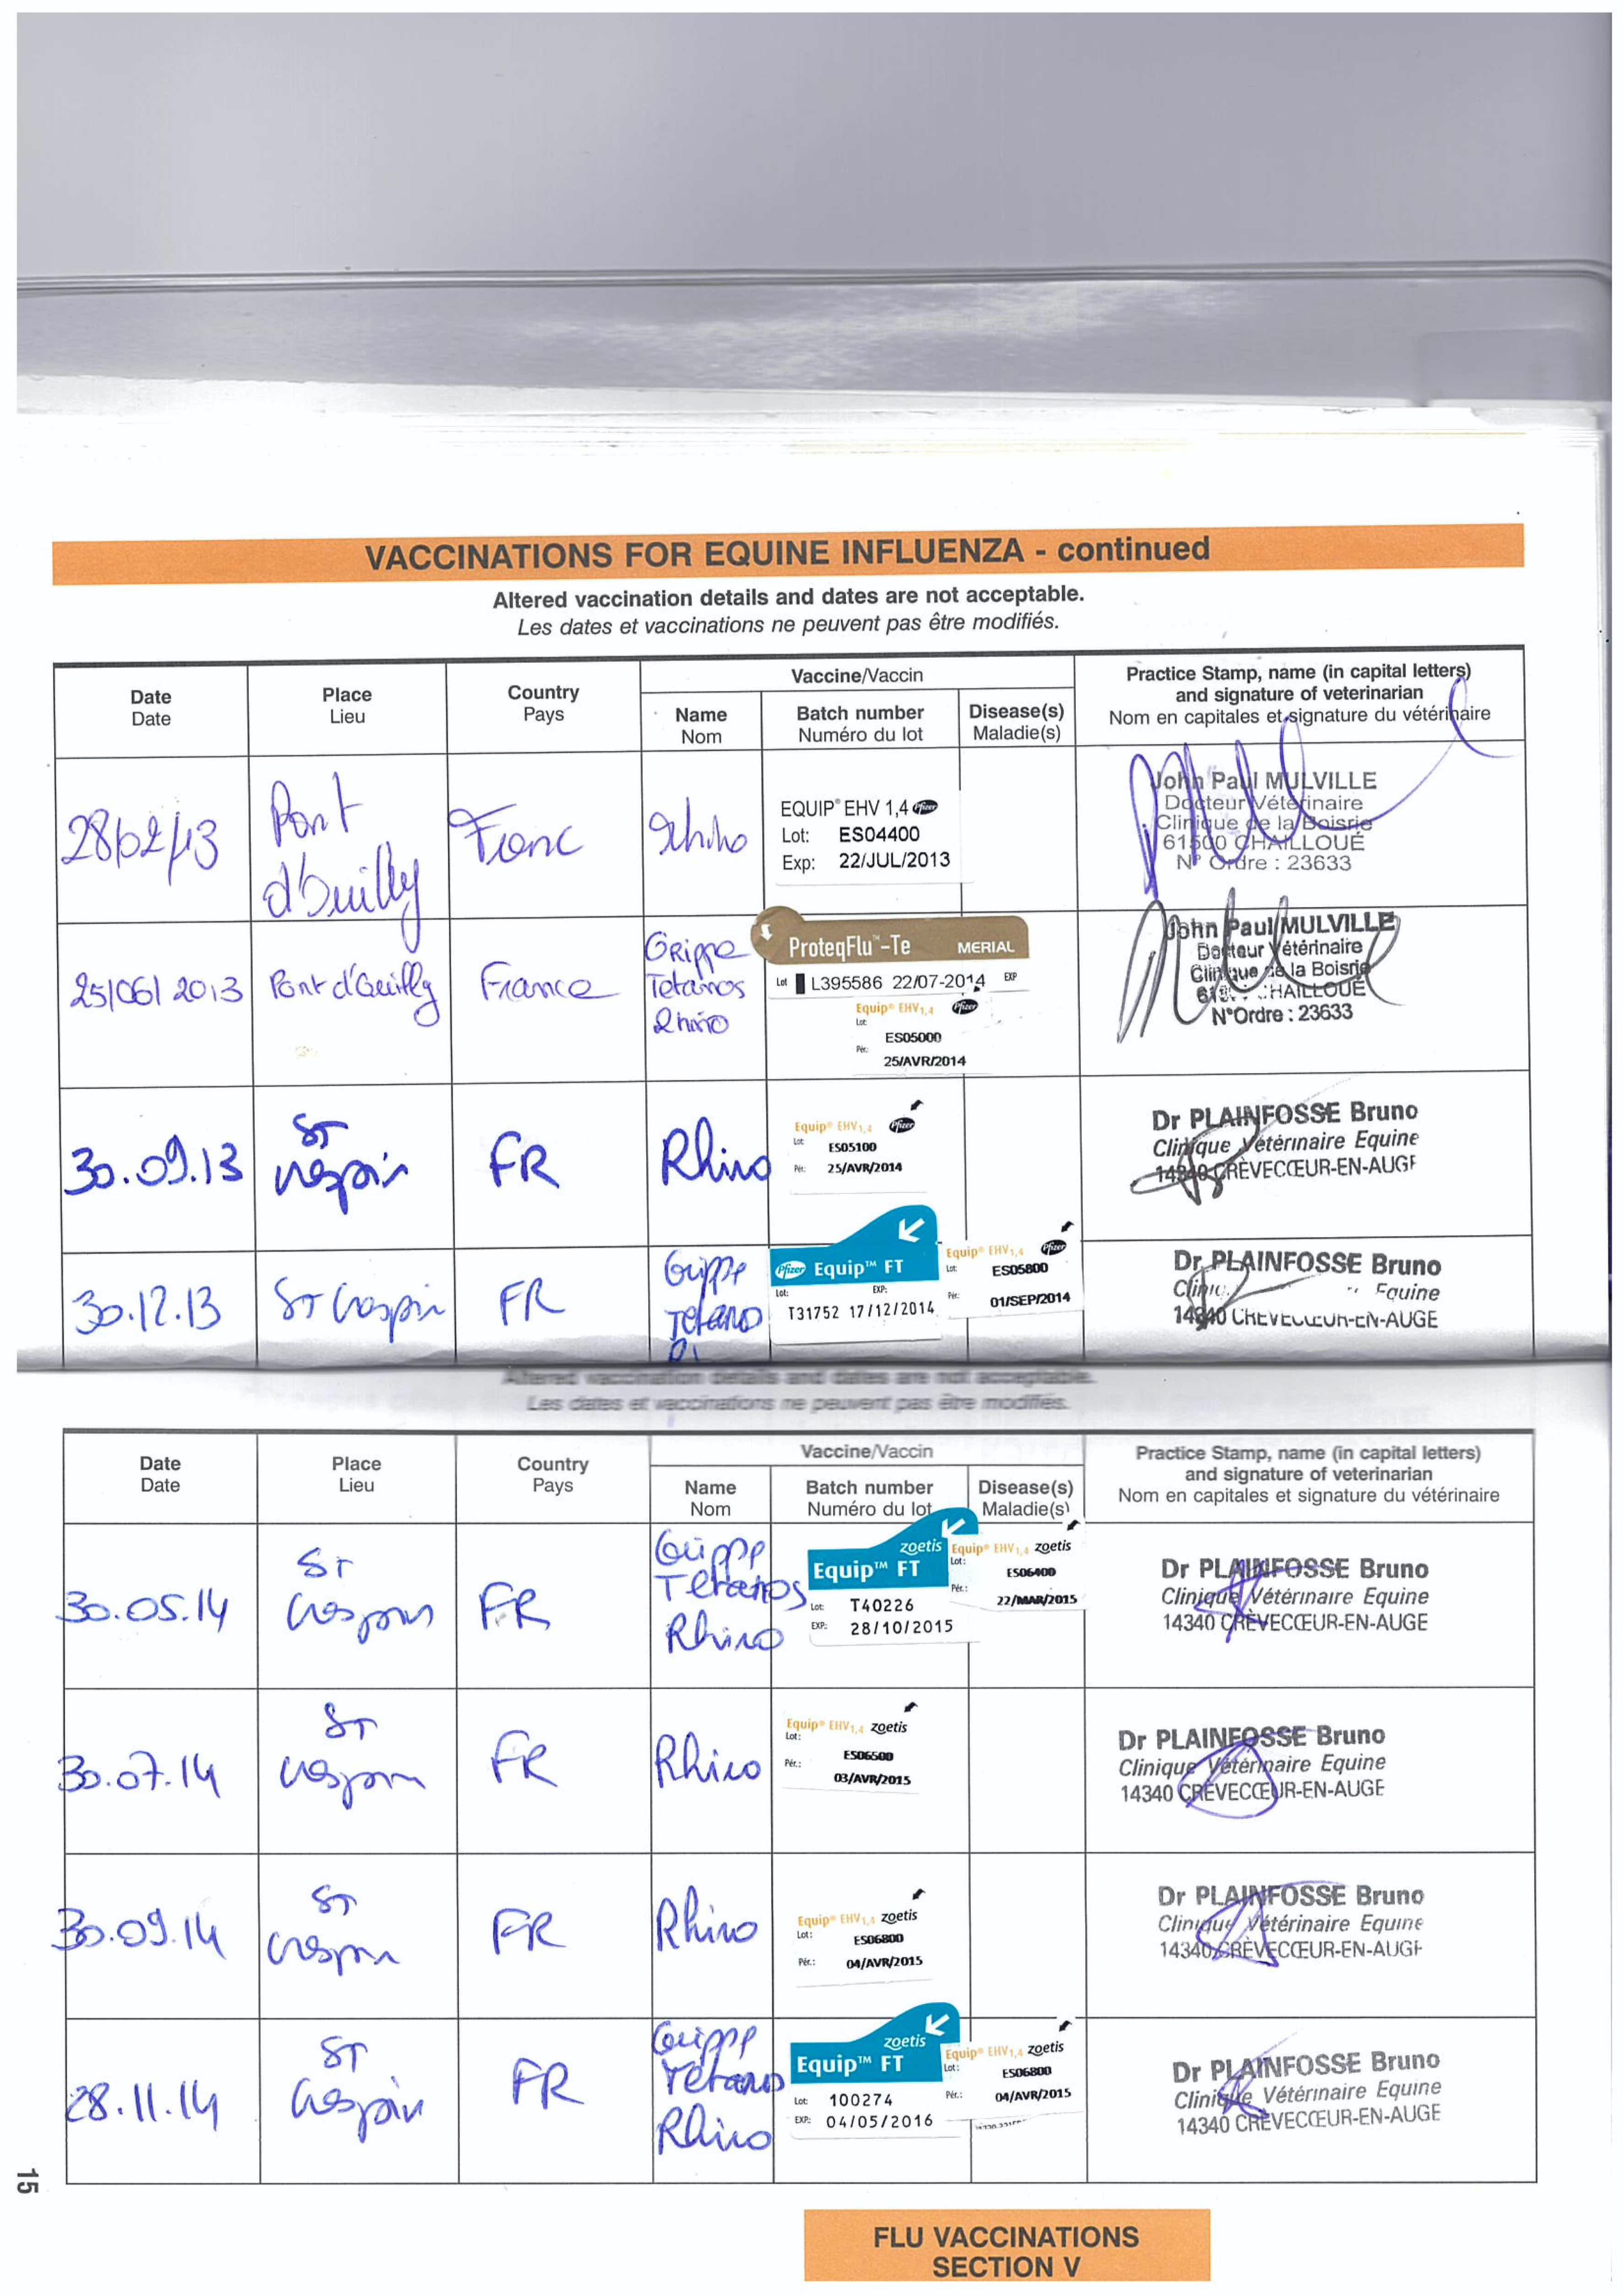 VACCINATIONS FOR EQUINE INFLUENZA - continued
Altered vaccination details and dates are not acceptable.
Les dates et vaccinations ne peuvent pas être modifiés.
Date
Date
Place
Lieu
Country
Pays
Vaccine/Vaccin
Name
Nom
Batch number
Numéro du lot
Disease(s)
Maladie(s)
Practice Stamp, name (in capital letters)
and signature of veterinarian
Nom en capitales et signature du vétérinaire
28/02/13
Pont
d'Ouilly
Franc
Rhino
EQUIP® EHV 1,4 Pfizer
Lot: ES04400
Exp: 22/JUL/2013
John Paul MULVILLE
Docteur Vétérinaire
Clinique de la Boisrie
61500 CHAILLOUÉ
N° Ordre : 23633
25/06/2013
Pont d'Ouilly
France
Grippe
Tetanos
Rhino
ProteqFlu™-Te MERIAL
Lot L395586 22/07-2014 EXP
Equip® EHV1,4 Pfizer
Lot:
ES05000
Pér.:
25/AVR/2014
John Paul MULVILLE
Docteur Vétérinaire
Clinique de la Boisrie
CHAILLOUÉ
N°Ordre : 23633
30.09.13
ST
Crespin
FR
Rhino
Equip® EHV1,4 Pfizer
Lot:
ES05100
Pér.: 25/AVR/2014
Dr PLAINFOSSE Bruno
Clinique Vétérinaire Equine
14340 CRÈVECŒUR-EN-AUGE
30.12.13
ST Crespin
FR
Grippe
Tetano
Pfizer Equip™ FT
Lot: EXP:
T31752 17/12/2014
Equip® EHV1,4 Pfizer
Lot: ES05800
Pér.: 01/SEP/2014
Dr PLAINFOSSE Bruno
Equine
14340 CRÈVECŒUR-EN-AUGE
Altered vaccination details and dates are not acceptable.
Les dates et vaccinations ne peuvent pas être modifiés.
Date
Date
Place
Lieu
Country
Pays
Vaccine/Vaccin
Name
Nom
Batch number
Numéro du lot
Disease(s)
Maladie(s)
Practice Stamp, name (in capital letters)
and signature of veterinarian
Nom en capitales et signature du vétérinaire
30.05.14
ST
Crespin
FR
Grippe
Tetanos
Rhino
zoetis
Equip™ FT
Lot: T40226
EXP: 28/10/2015
Equip® EHV1,4 zoetis
Lot:
ES06400
Pér.:
22/MAR/2015
Dr PLAINFOSSE Bruno
Clinique Vétérinaire Equine
14340 CRÈVECŒUR-EN-AUGE
30.07.14
ST
Crespin
FR
Rhino
Equip® EHV1,4 zoetis
Lot:
ES06500
Pér.:
03/AVR/2015
Dr PLAINFOSSE Bruno
Clinique Vétérinaire Equine
14340 CRÈVECŒUR-EN-AUGE
30.09.14
ST
Crespin
FR
Rhino
Equip® EHV1,4 zoetis
Lot:
ES06800
Pér.: 04/AVR/2015
Dr PLAINFOSSE Bruno
Clinique Vétérinaire Equine
14340 CRÈVECŒUR-EN-AUGE
28.11.14
ST
Crespin
FR
Grippe
Tetanos
Rhino
zoetis
Equip™ FT
Lot: 100274
EXP: 04/05/2016
Equip® EHV1,4 zoetis
Lot:
ES06800
Pér.: 04/AVR/2015
Dr PLAINFOSSE Bruno
Clinique Vétérinaire Equine
14340 CRÈVECŒUR-EN-AUGE
15
FLU VACCINATIONS
SECTION V